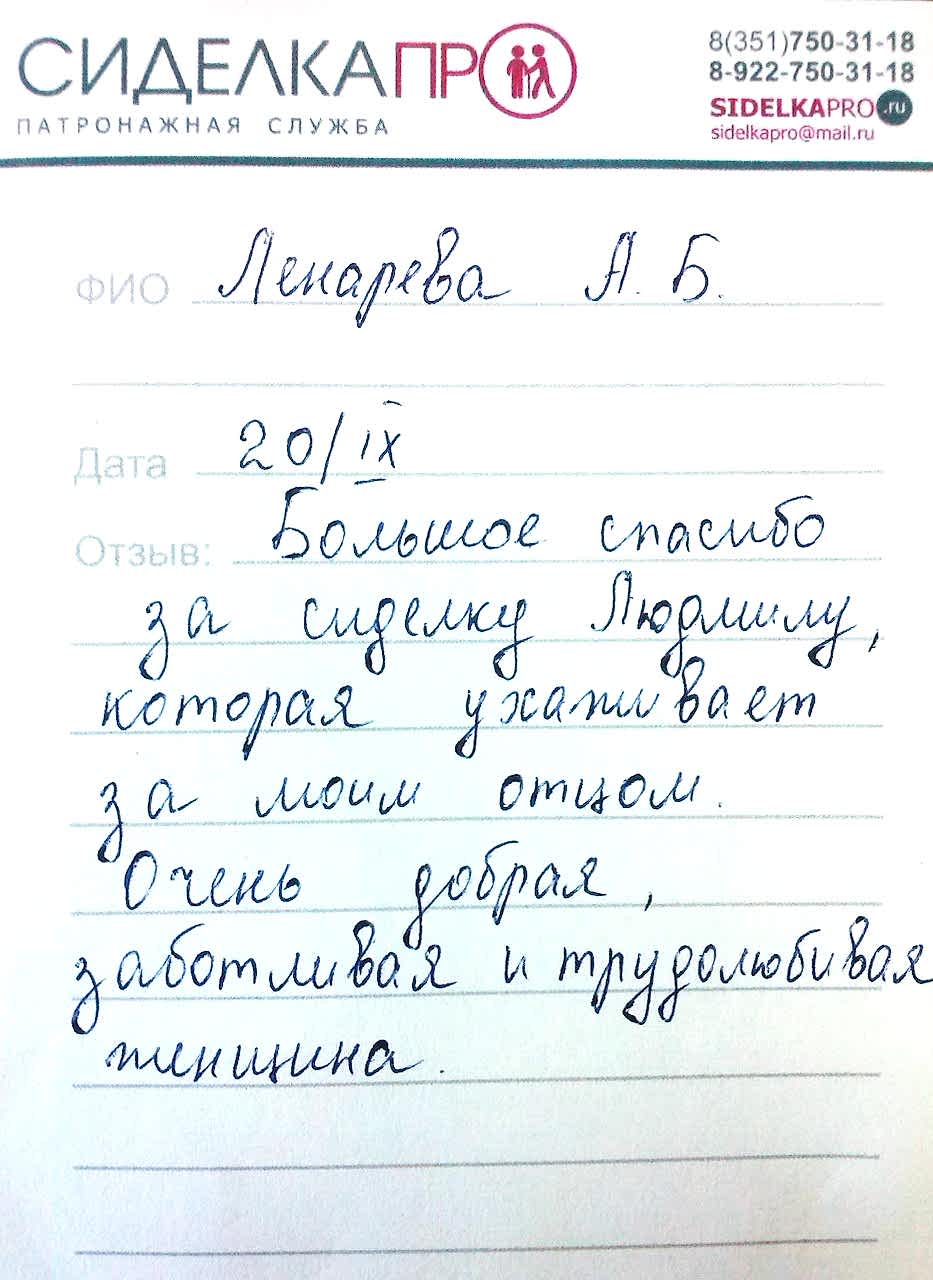 СИДЕЛКАПРО
ПАТРОНАЖНАЯ СЛУЖБА
8(351)750-31-18
8-922-750-31-18
SIDELKAPRO.ru
sidelkapro@mail.ru
ФИО Ленарева А. Б.
Дата 20/IX
Отзыв: Большое спасибо
за сиделку Людмилу,
которая ухаживает
за моим отцом.
Очень добрая,
заботливая и трудолюбивая
женщина.